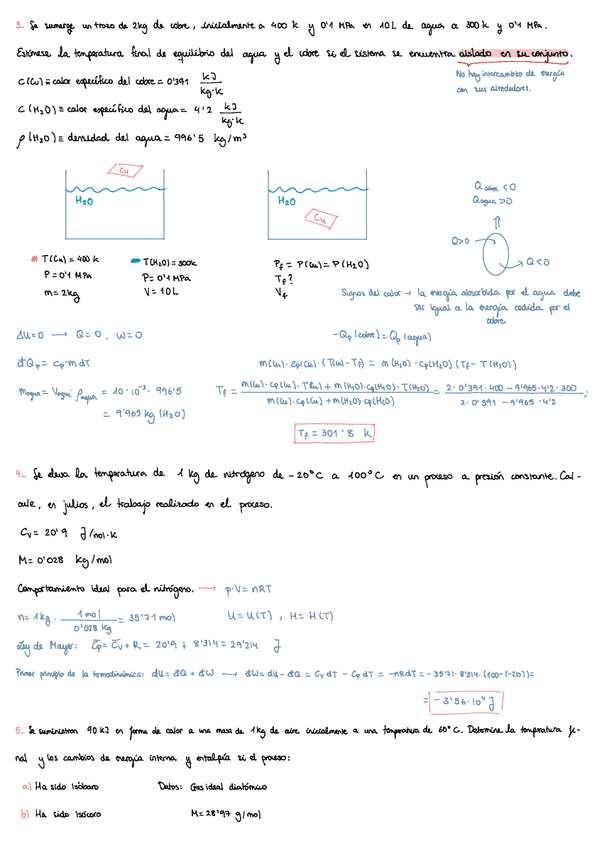 3- Se sumerge un trozo de 2kg de cobre, inicialmente a 400 k y 0'1 MPa en 10L de agua a 300 k y 0'1 MPa.
Estímese la temperatura final de equilibrio del agua y el cobre si el sistema se encuentra aislado en su conjunto.
No hay intercambios de energía
con sus alrededores.
C(Cu) ≡ calor específico del cobre = 0'391 kJ/kg·k
C(H2O) ≡ calor específico del agua = 4'2 kJ/kg·k
ρ(H2O) ≡ densidad del agua = 996'5 kg/m³
Cu
H2O
H2O
Cu
Q cobre < 0
Q agua > 0
⇑
Q>0
Q<0
T(Cu) = 400 k
P = 0'1 MPa
m = 2kg
T(H2O) = 300k
P = 0'1 MPa
V = 10L
Pf = P(Cu) = P(H2O)
Tf?
Vf
Signos del calor → la energía absorbida por el agua debe
ser igual a la energía cedida por el
cobre
ΔU=0 → Q=0, W=0
-Qp (cobre) = Qp (agua)
đQp = Cp·m dT
m(Cu)·Cp(Cu)·(T(Cu) - Tf) = m(H2O)·Cp(H2O)(Tf - T(H2O))
magua = Vagua·ρagua = 10·10⁻³·996'5
= 9'965 kg (H2O)
Tf = m(Cu)·Cp(Cu)·T(Cu) + m(H2O)·Cp(H2O)·T(H2O) / m(Cu)·Cp(Cu) + m(H2O)·Cp(H2O) = 2·0'391·400 - 9'965·4'2·300 / 2·0'391 - 9'965·4'2 ;
Tf = 301'8 k
4- Se eleva la temperatura de 1 kg de nitrógeno de -20°C a 100°C en un proceso a presión constante. Cal-
cule, en julios, el trabajo realizado en el proceso.
Cv = 20'9 J/mol·k
M = 0'028 kg/mol
Comportamiento ideal para el nitrógeno. → p·V = nRT
n = 1kg · 1 mol / 0'028 kg = 35'71 mol
U = U(T), H = H(T)
Ley de Mayer: C̄p = C̄v + R = 20'9 + 8'314 = 29'214 J
Primer principio de la termodinámica: dU = đQ + đW → đW = dU - đQ = Cv dT - Cp dT = -nRdT = -35'71·8'314·(100-(-20)) =
= -3'56·10⁴ J
5- Se suministran 90 kJ en forma de calor a una masa de 1kg de aire inicialmente a una temperatura de 60°C. Determine la temperatura fi-
nal y los cambios de energía interna y entalpía si el proceso:
a) Ha sido Isóbaro
Datos: Gas ideal diatómico
b) Ha sido Isócoro
M = 28'97 g/mol